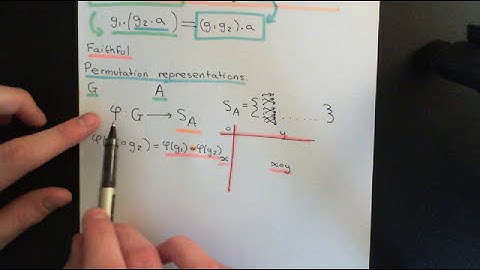 g₁.(g₂.a) = (g₁g₂).a
Faithful
Permutation representations.
G A
φ: G → S_A
S_A = { ....... }
o y
∘g₂) = φ(g₁)∘φ(g₂)
x x∘y